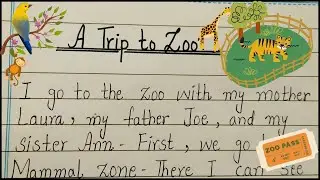 A Trip to Zoo
I go to the zoo with my mother
Laura, my father Joe, and my
sister Ann- First, we go
Mammal zone- There I can see
ZOO PASS